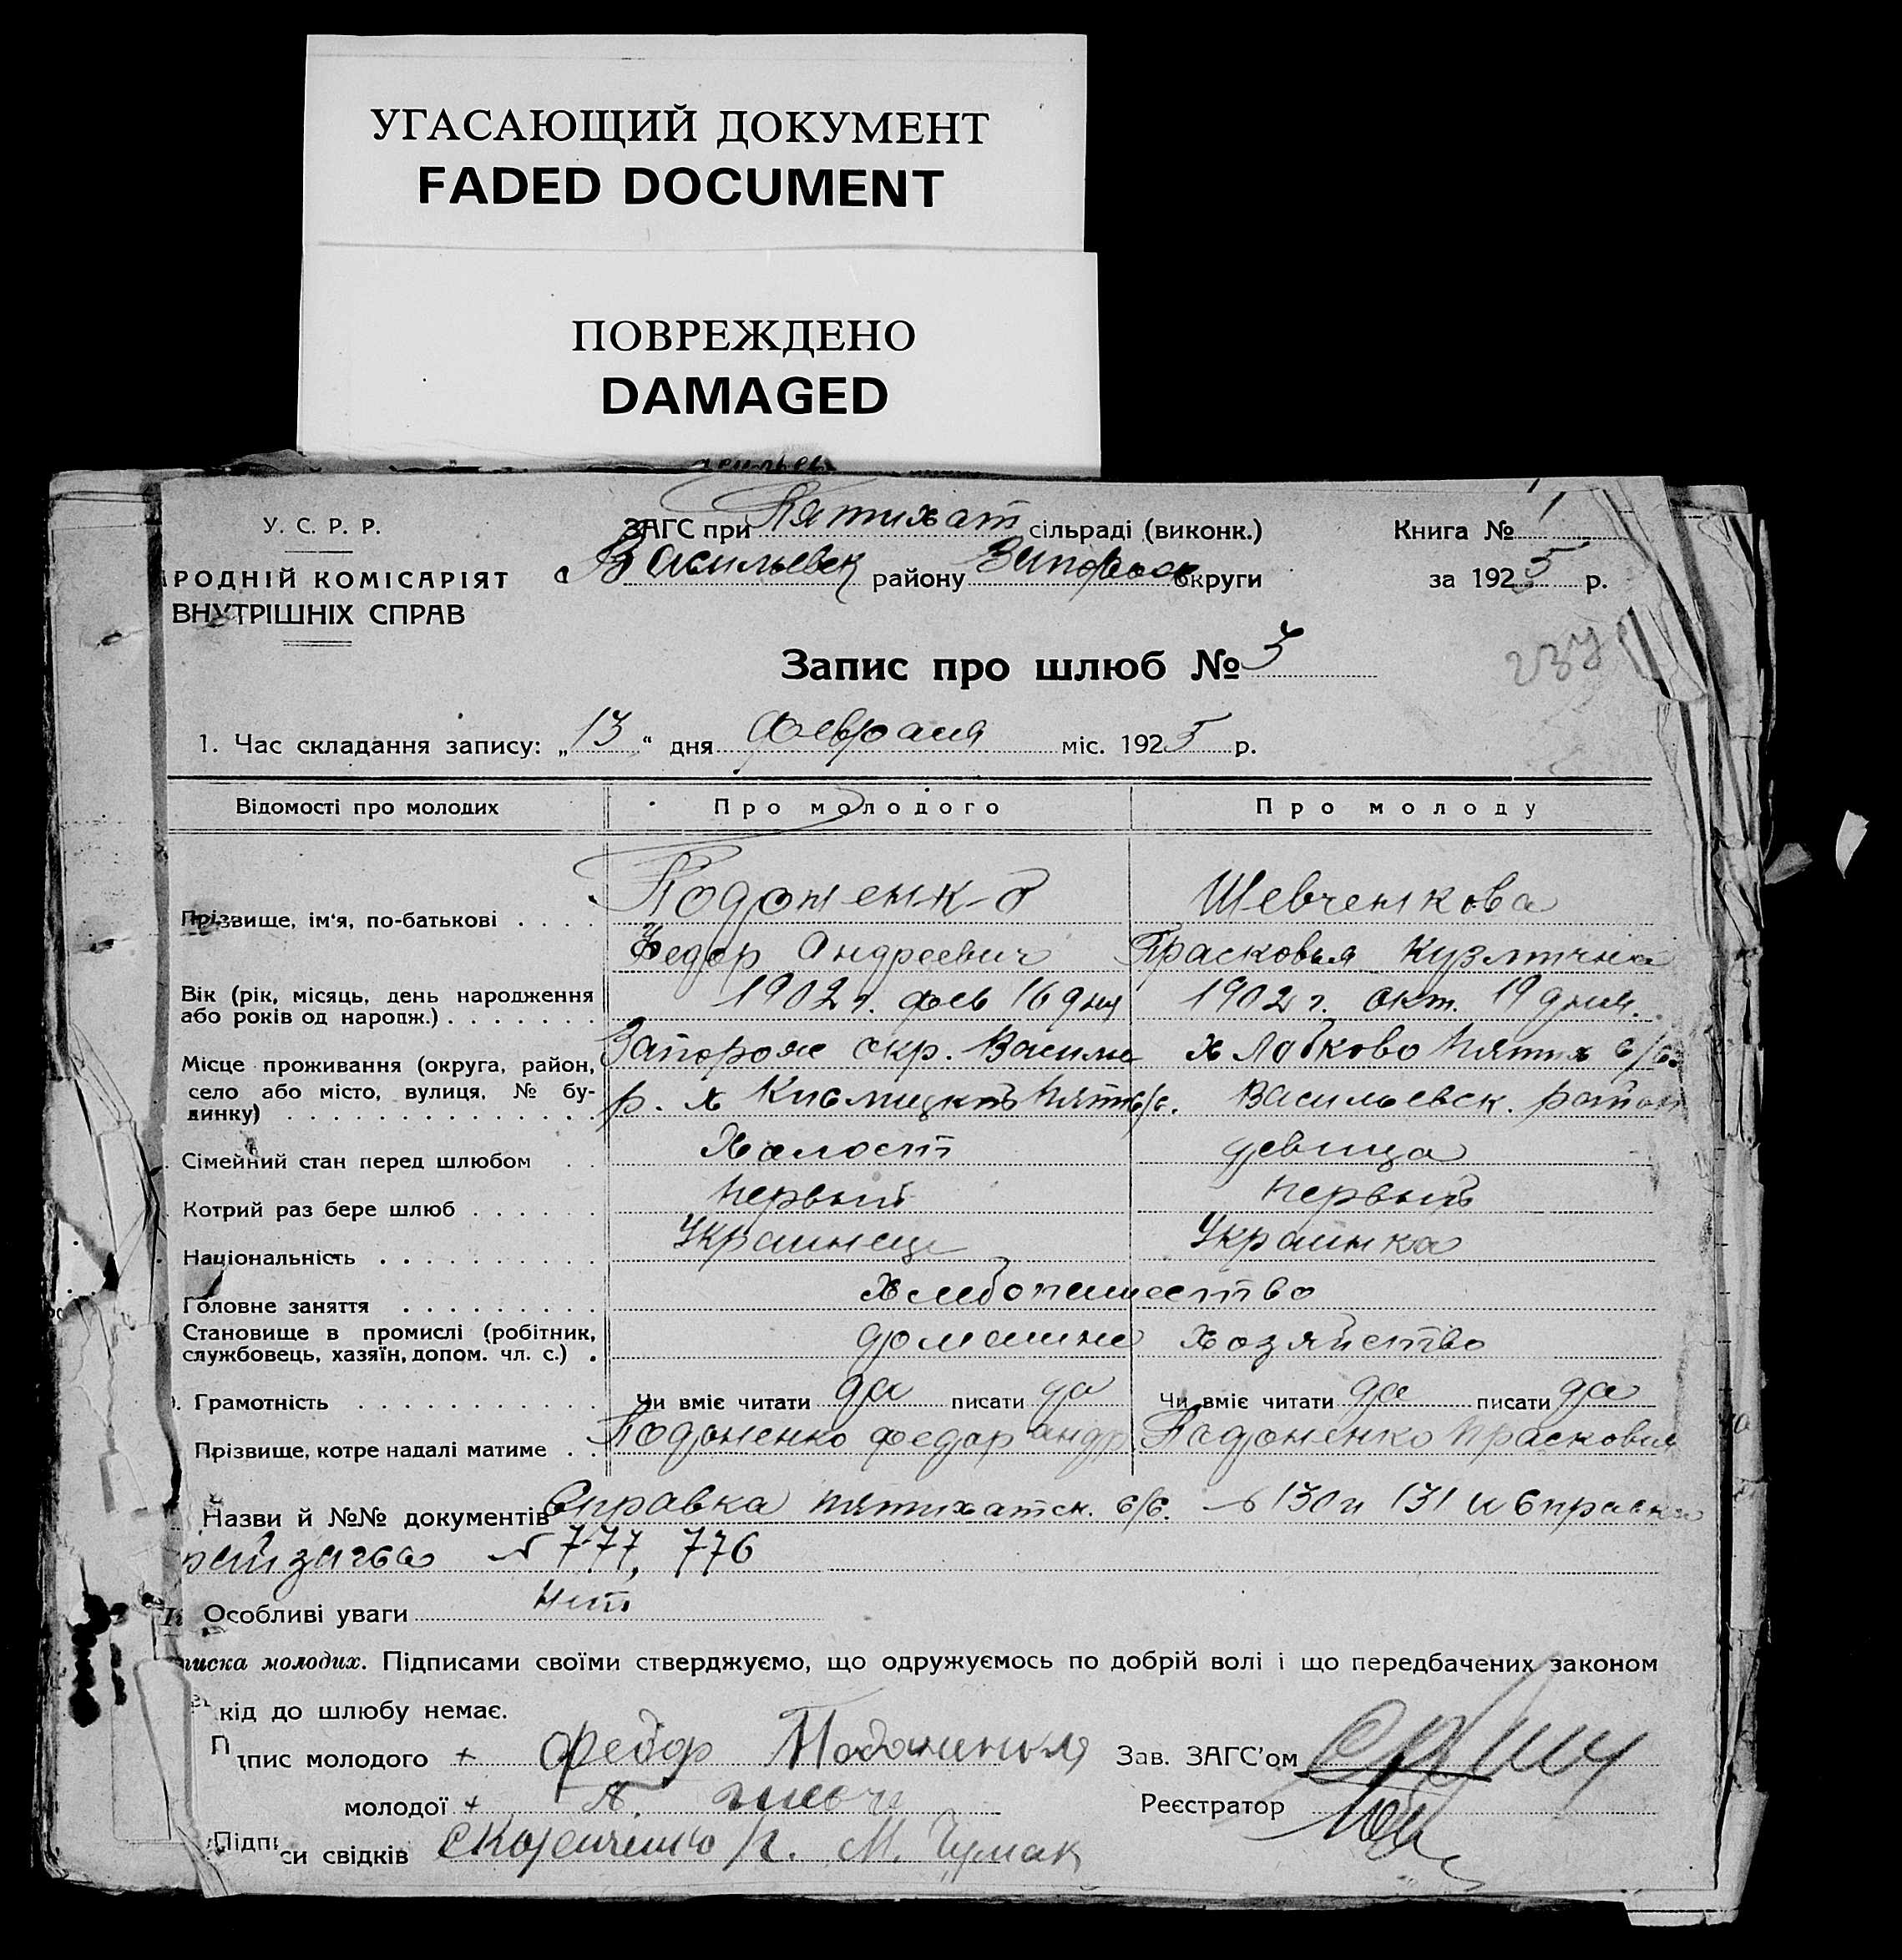 УГАСАЮЩИЙ ДОКУМЕНТ
FADED DOCUMENT
ПОВРЕЖДЕНО
DAMAGED
У. С. Р. Р.
РОДНІЙ КОМІСАРІЯТ
ВНУТРІШНІХ СПРАВ
ЗАГС при Пятихат сільраді (виконк.)
Васильевск району Запорож округи
Книга № 1
за 1925 р.
Запис про шлюб № 3
1. Час складання запису: „13“ дня февраля міс. 1925 р.
Відомості про молодих Про молодого Про молоду
Прізвище, ім‘я, по-батькові . . . . Шевченкова
Федор Андреевич Прасковья Кузминична
Вік (рік, місяць, день народження 1902 г. фев 16 дня 1902 г. окт. 19 дня.
або років од народж.) . . . . . . .
Місце проживання (округа, район, Запорож окр. Василь х Лабково Пятих с/с.
село або місто, вулиця, № бу- р. х Пятих с/с. Васильевск. район
динку) . . . . . . . . . . . . .
Сімейний стан перед шлюбом . . Халост девица
Котрий раз бере шлюб . . . . . . первый первый
Національність . . . . . . . . . . Украинец Украинка
Головне заняття . . . . . . . . . Хлебопашество
Становище в промислі (робітник, домашне хозяйство
службовець, хазяїн, допом. чл. с.) .
Грамотність . . . . . . . . . . . Чи вміє читати да писати да Чи вміє читати да писати да
Прізвище, котре надалі матиме . . Подоненко Федор Андр Подоненко Прасковья
Назви й №№ документів Справка пятихатск. с/с. № 130 и 131 и справки
райзагса № 777, 776
Особливі уваги нет
писка молодих. Підписами своїми стверджуємо, що одружуємось по добрій волі і що передбачених законом
кід до шлюбу немає.
П дпис молодого + Федор Зав. ЗАГС’ом
молодої + Реєстратор
Підпи си свідків М. Чумак